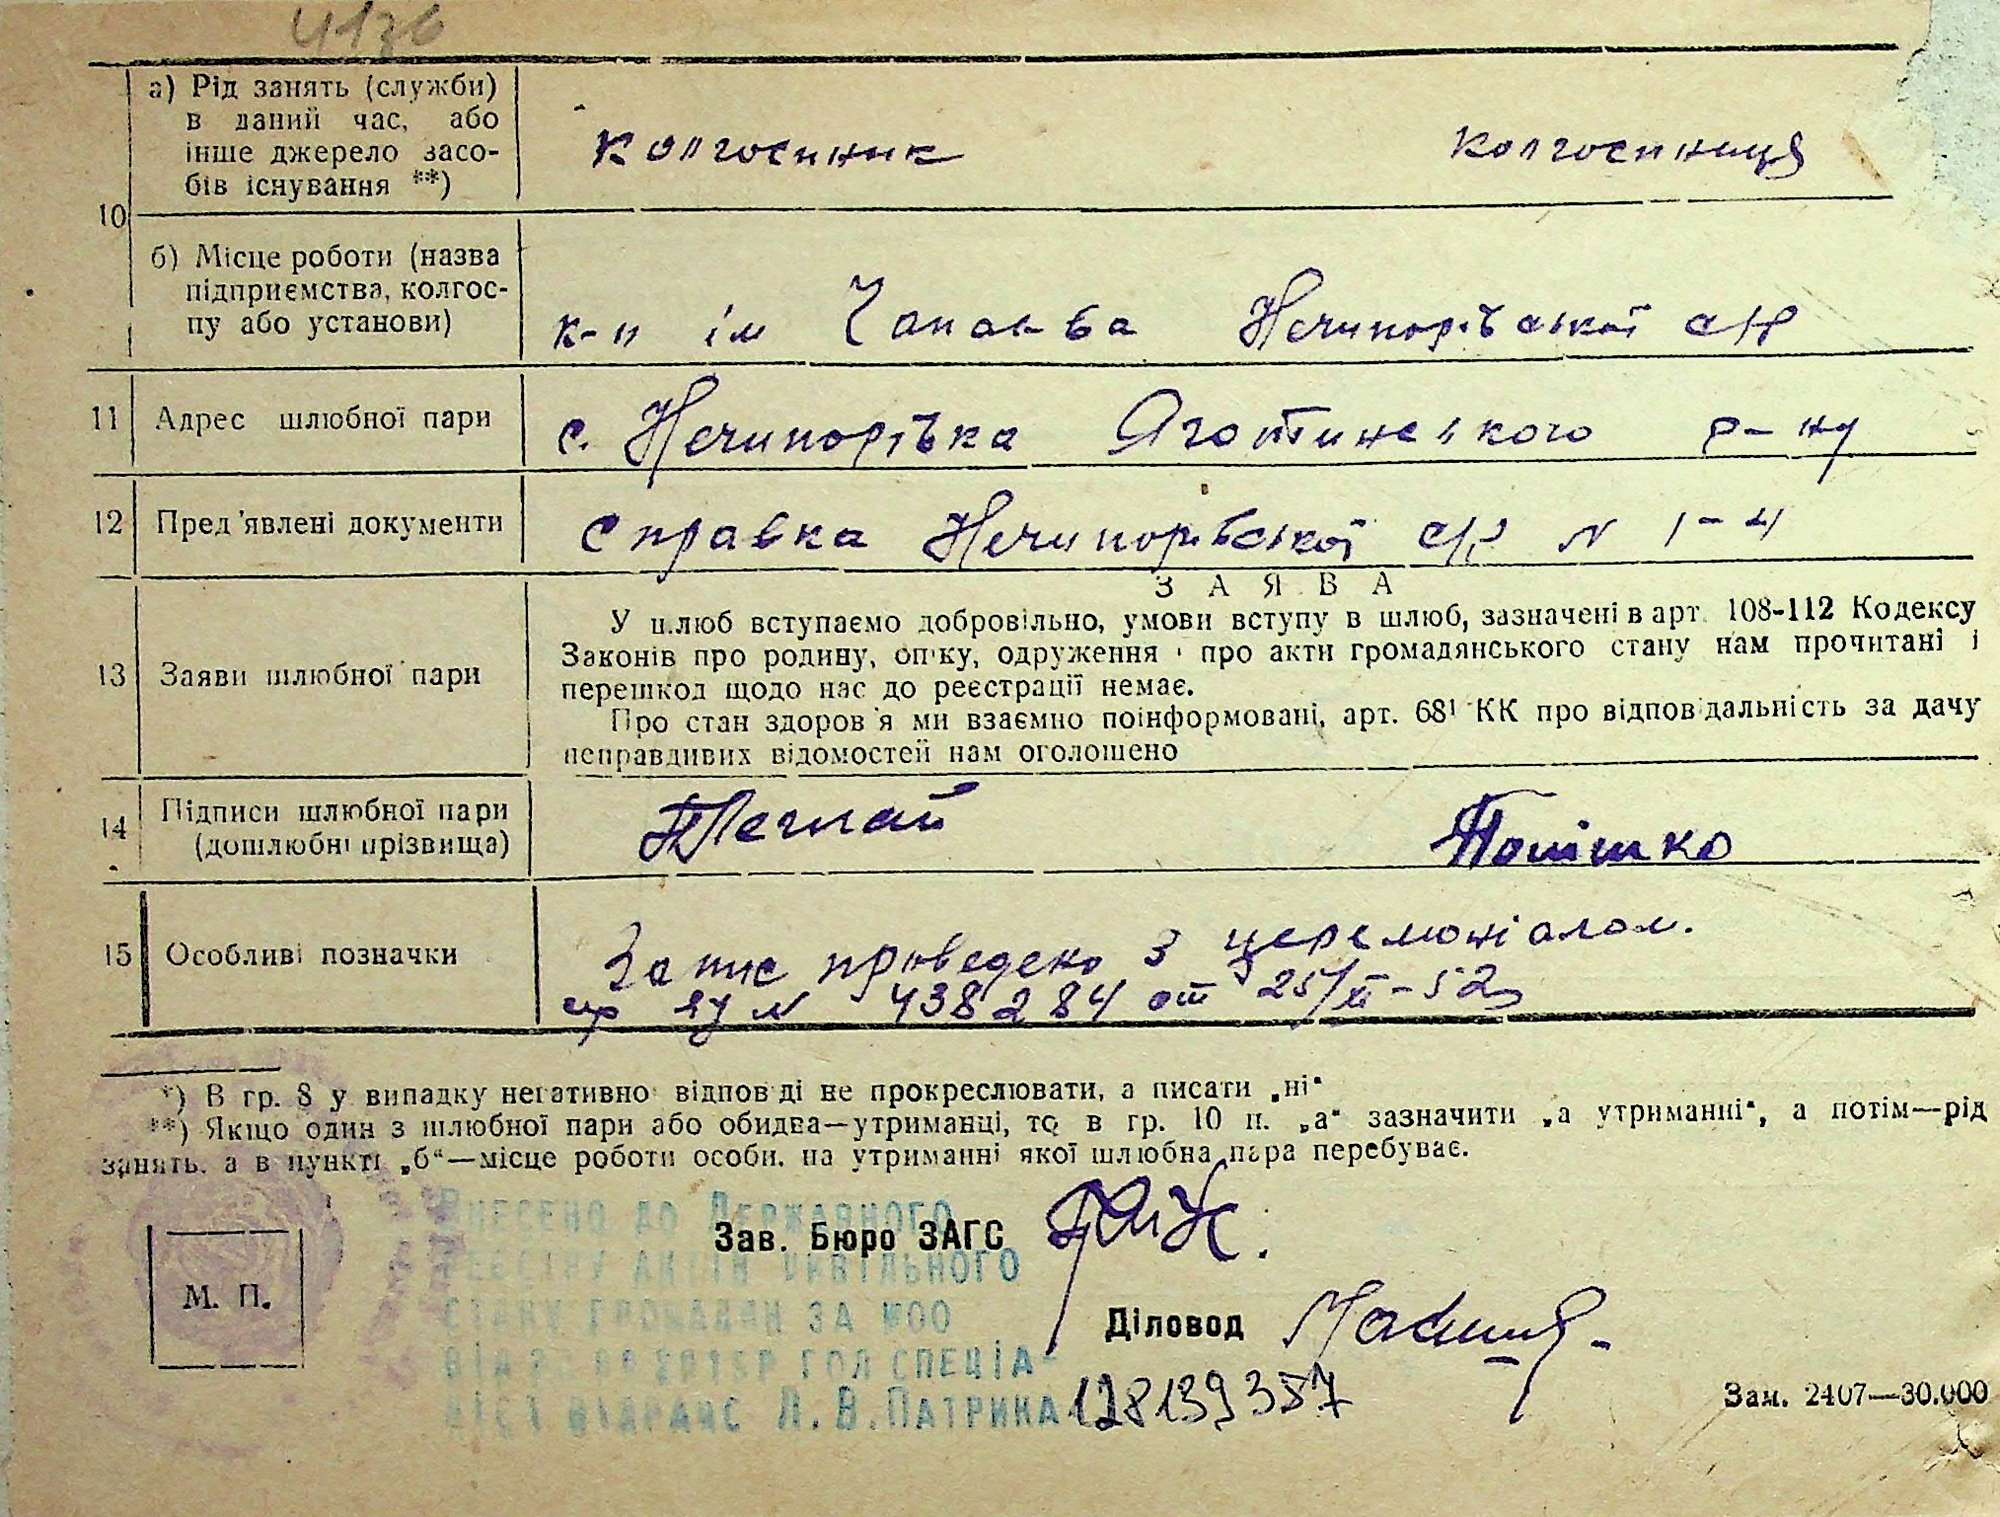 4136
а) Рід занять (служби) в даний час, або інше джерело засобів існування **)
колгоспник колгоспниця
10
б) Місце роботи (назва підприємства, колгоспу або установи)
к-п ім Чапаєва Нечипорівської с/р
11 Адрес шлюбної пари
с. Нечипорівка Яготинського р-ну
12 Пред'явлені документи
Справка Нечипорівської с/р N 1-4
ЗАЯВА
13 Заяви шлюбної пари
У шлюб вступаємо добровільно, умови вступу в шлюб, зазначені в арт. 108-112 Кодексу
Законів про родину, опіку, одруження і про акти громадянського стану нам прочитані і
перешкод щодо нас до реєстрації немає.
Про стан здоров'я ми взаємно поінформовані, арт. 68¹ КК про відповідальність за дачу
неправдивих відомостей нам оголошено
14 Підписи шлюбної пари (дошлюбні прізвища)
15 Особливі позначки
Запис проведено з церемоніалом.
N 438284 от 25/II-52
*) В гр. 8 у випадку негативної відповіді не прокреслювати, а писати „ні“
**) Якщо один з шлюбної пари або обидва—утриманці, то в гр. 10 п. „а“ зазначити „а утриманні“, а потім—рід
занять, а в пункті „б“—місце роботи особи, на утриманні якої шлюбна пара перебуває.
Внесено до Державного
реєстру актів цивільного
стану громадян за №00
гол спеціа-
ліст Л.В.Патрика 128139357
Зав. Бюро ЗАГС
Діловод
М. П.
Зам. 2407—30.000